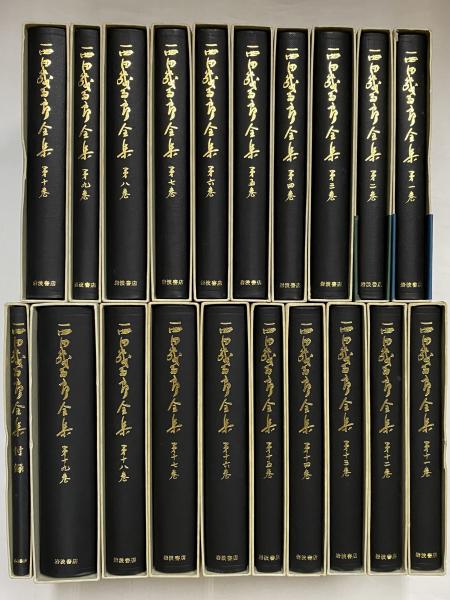 西田幾多郎全集 第一巻
岩波書店
西田幾多郎全集 第二巻
岩波書店
西田幾多郎全集 第三巻
岩波書店
西田幾多郎全集 第四巻
岩波書店
西田幾多郎全集 第五巻
岩波書店
西田幾多郎全集 第六巻
岩波書店
西田幾多郎全集 第七巻
岩波書店
西田幾多郎全集 第八巻
岩波書店
西田幾多郎全集 第九巻
岩波書店
西田幾多郎全集 第十巻
岩波書店
西田幾多郎全集 第十一巻
岩波書店
西田幾多郎全集 第十二巻
岩波書店
西田幾多郎全集 第十三巻
岩波書店
西田幾多郎全集 第十四巻
岩波書店
西田幾多郎全集 第十五巻
岩波書店
西田幾多郎全集 第十六巻
岩波書店
西田幾多郎全集 第十七巻
岩波書店
西田幾多郎全集 第十八巻
岩波書店
西田幾多郎全集 第十九巻
岩波書店
西田幾多郎全集 付録